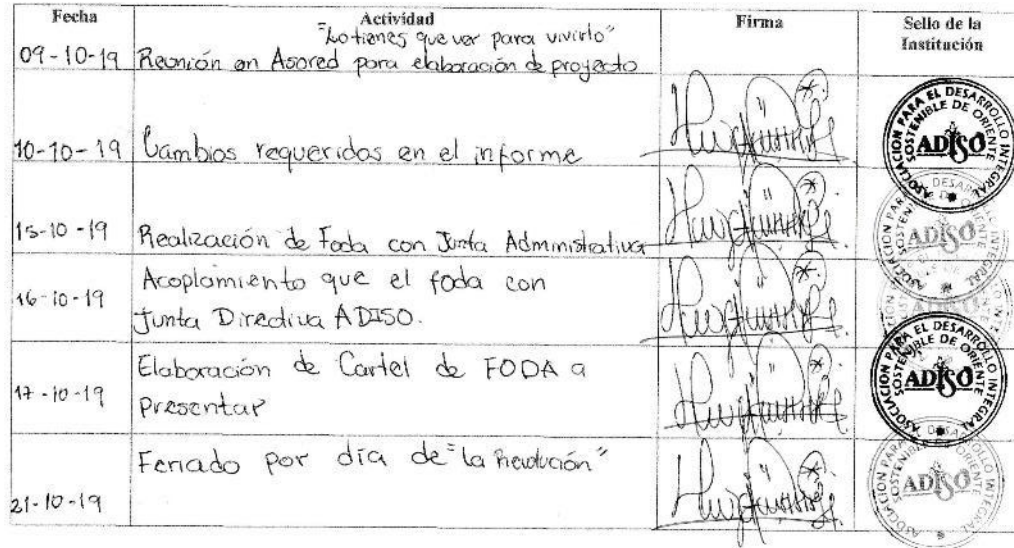 Fecha Actividad Firma Sello de la Institución
"Lo tienes que ver para vivirlo"
09-10-19 Reunión en Asored para elaboración de proyecto
10-10-19 Cambios requeridos en el informe
ASOCIACION PARA EL DESARROLLO INTEGRAL SOSTENIBLE DE ORIENTE ADISO
15-10-19 Realización de Foda con Junta Administrativa
ADISO
Acoplamiento que el foda con
16-10-19
Junta Directiva ADISO.
Elaboración de Cartel de FODA a
17-10-19
Presentar
ASOCIACION PARA EL DESARROLLO INTEGRAL SOSTENIBLE DE ORIENTE ADISO
Feriado por día de "la Revolución"
21-10-19
ADISO